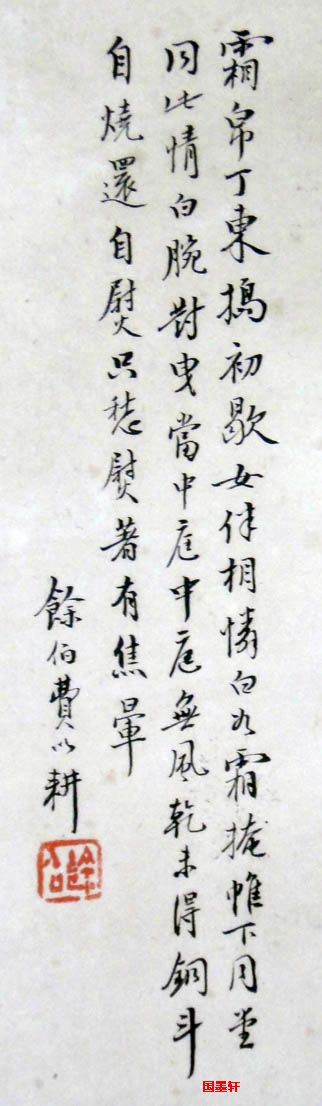 霜帛丁東搗初歇女伴相憐白霜掩帷下月堂
同此情白腕對曳當中庭中庭無風乾未得銅斗
自燒還自熨只愁熨著有焦暈
餘伯費以耕
餘伯
国墨轩